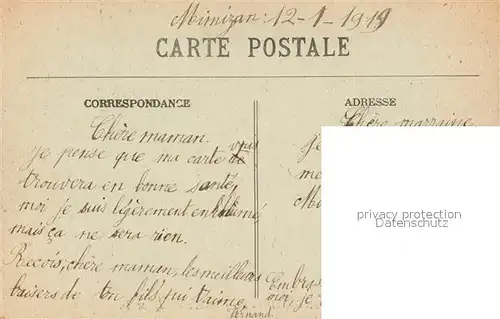 Mimizan: 12-1-1919
CARTE POSTALE
CORRESPONDANCE
Chère maman.
Je pense que ma carte vous
trouvera en bonne santé,
moi je suis légèrement enrhumé,
mais ça ne sera rien.
Reçois, chère maman, les meilleurs
baisers de ton fils qui t'aime
Fernand.
ADRESSE
Chère marraine
Je
me
M
privacy protection
Datenschutz
Embrass
moi, je